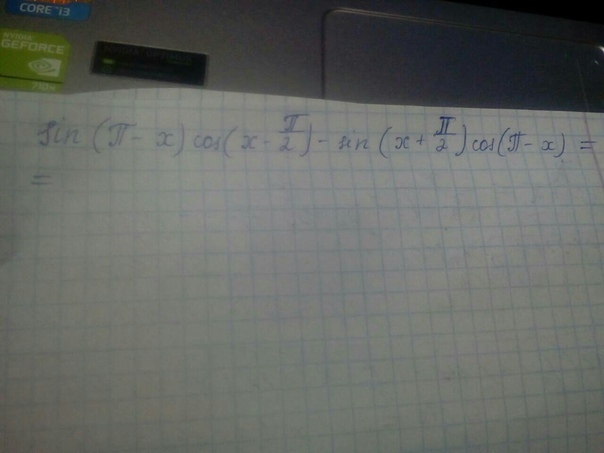 CORE i3
NVIDIA
GEFORCE
sin (π - x) cos(x - π/2) - sin (x + π/2) cos(π - x) =
=